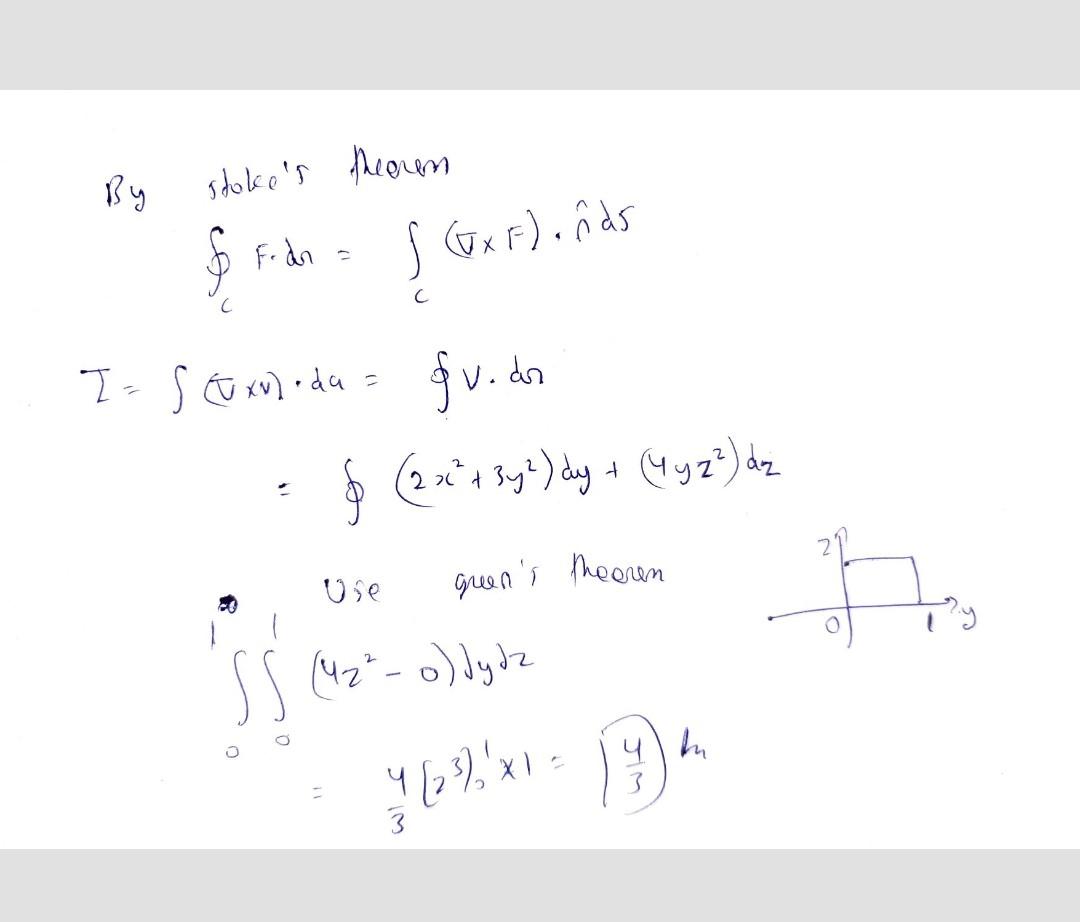 By stoke's theorem
∮_C F·dr = ∫_C (∇×F)·n̂ ds
I = ∫(∇×v)·da = ∮ v·dr
= ∮ (2x²+3y²)dy + (4yz²)dz
Use green's theorem
z
0 1 y
∫₀¹ ∫₀¹ (4z²-0)dydz
= 4/3 [z³]₀¹ ×1 = 4/3